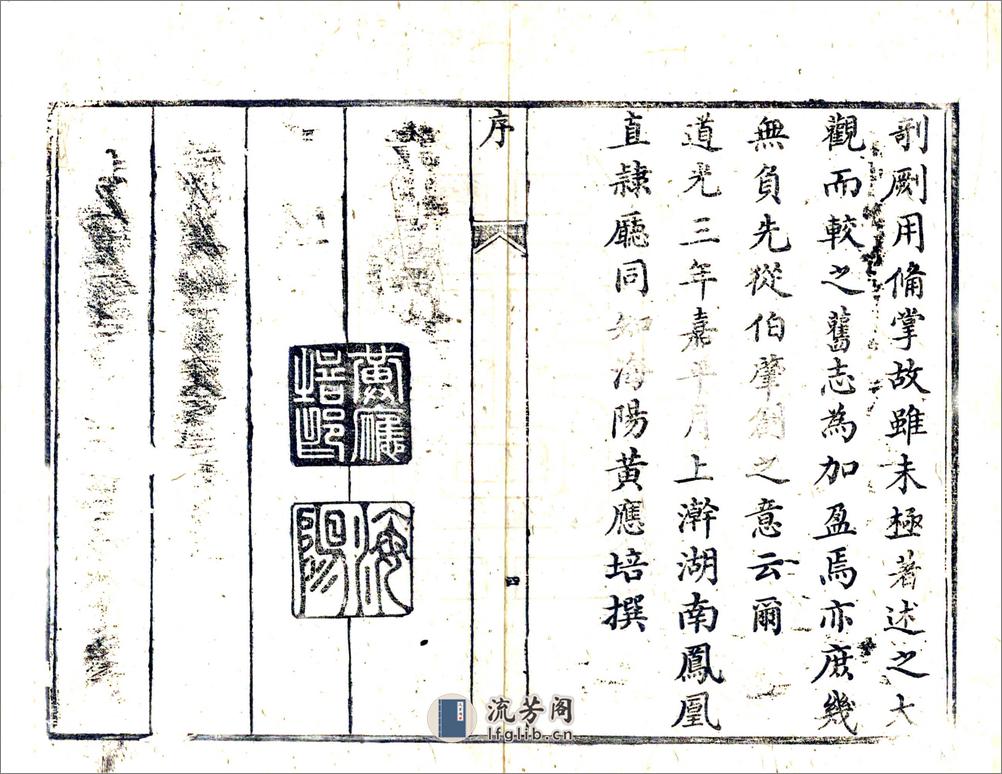 剞劂用備掌故雖未極著述之大
觀而較之舊志為加盈焉亦庶幾
無負先從伯肇創之意云爾
道光三年嘉平月上澣湖南鳳凰
直隸廳同知海陽黃應培撰
序
四
黃應
培印
海
陽
流芳阁
lfglib.cn